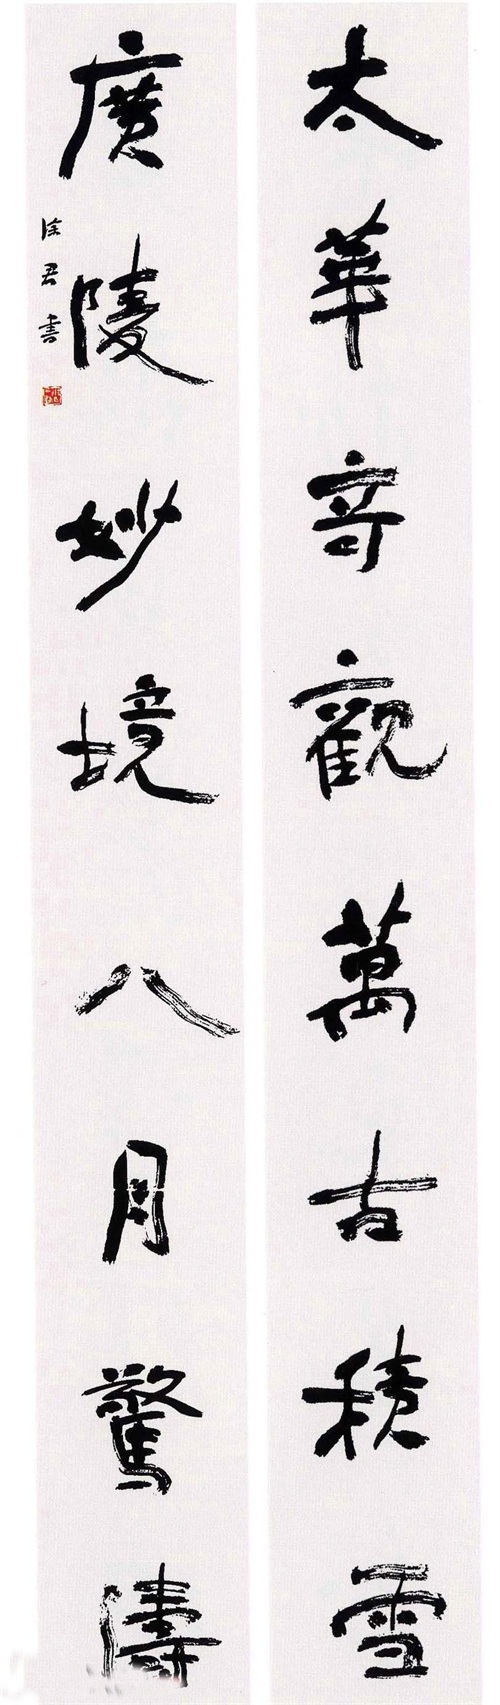 太華奇觀萬古積雪
廣陵妙境八月驚濤
徐君書